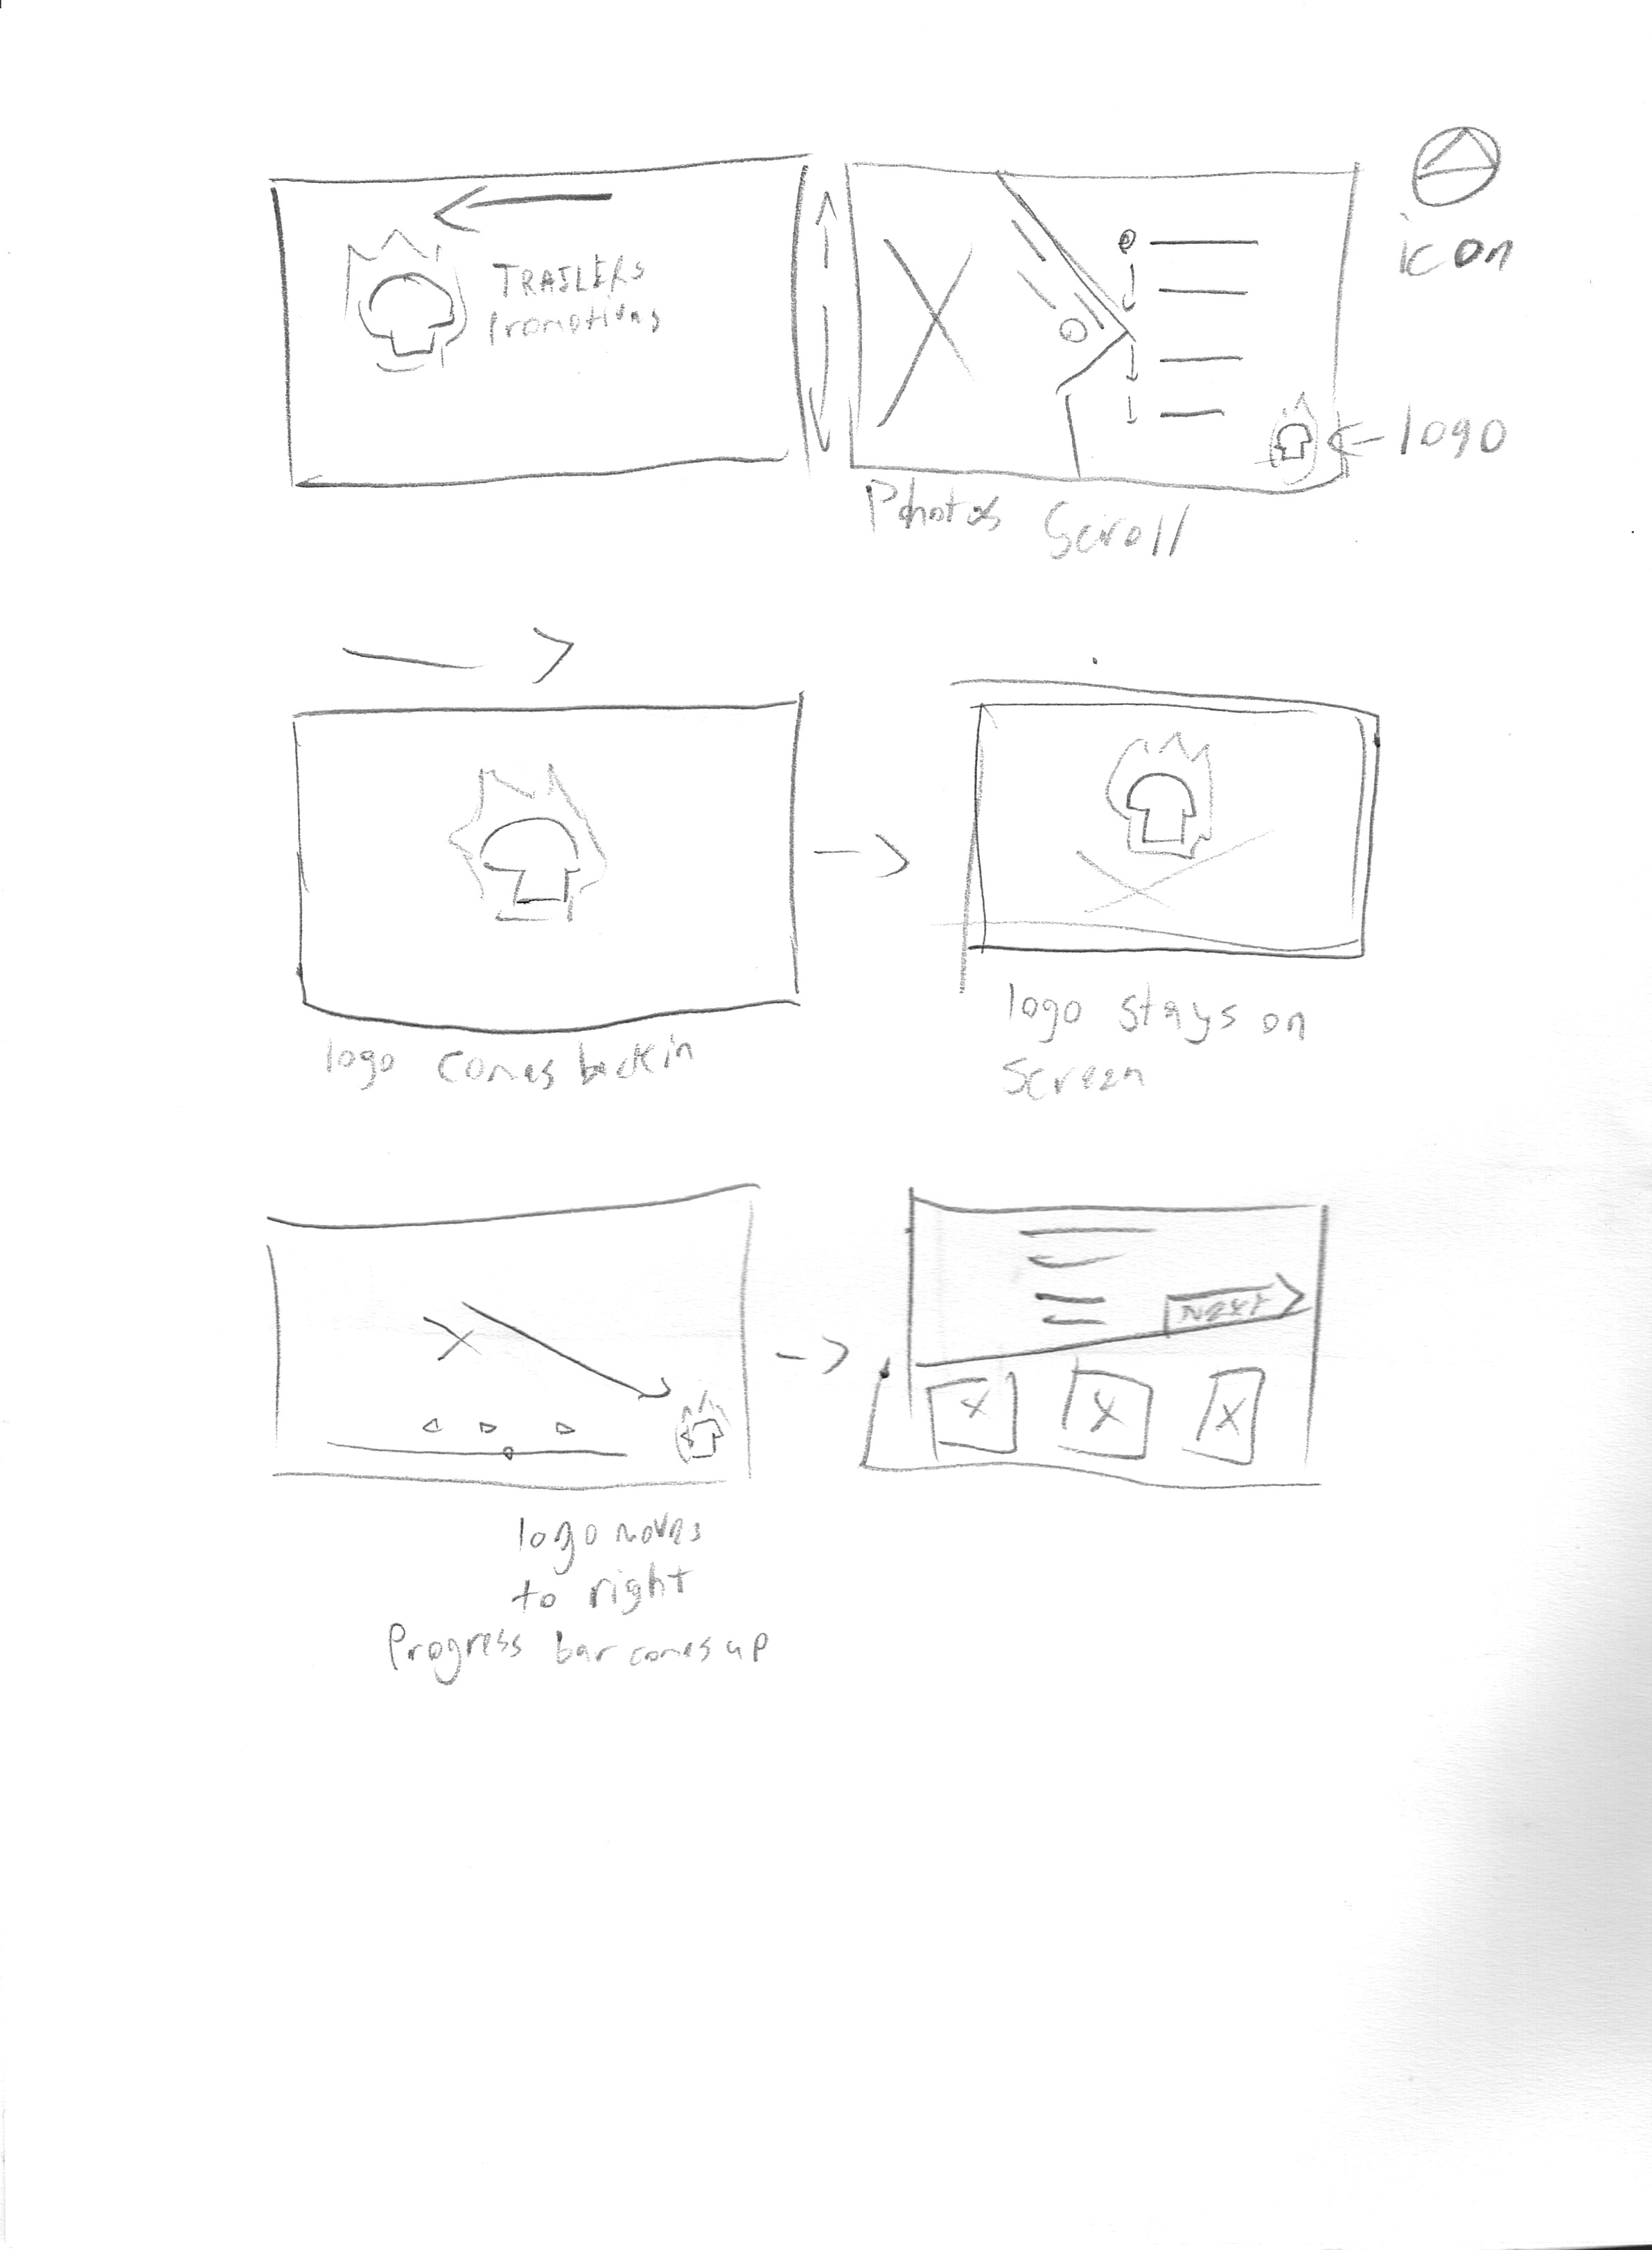 TRAILERS
Promotions
icon
logo
Photos Scroll
logo comes back in
logo stays on
Screen
NEXT
logo moves
to right
Progress bar comes up